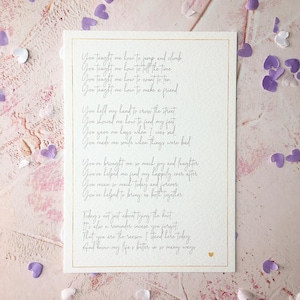 You taught me how to jump and climb
You taught me how to tell the time
You taught me how to count to ten
You taught me how to make a friend
You held my hand to cross the street
You showed me how to find my feet
You gave me hugs when I was sad
You made me smile when things were bad
You've brought me so much joy and laughter
You've helped me find my happily ever after
You mean so much, today and forever
You've helped to bring us both together
Today's not just about tying the knot
It's also a reminder
That you are the reason I stand here today
And know my life's better in so many ways